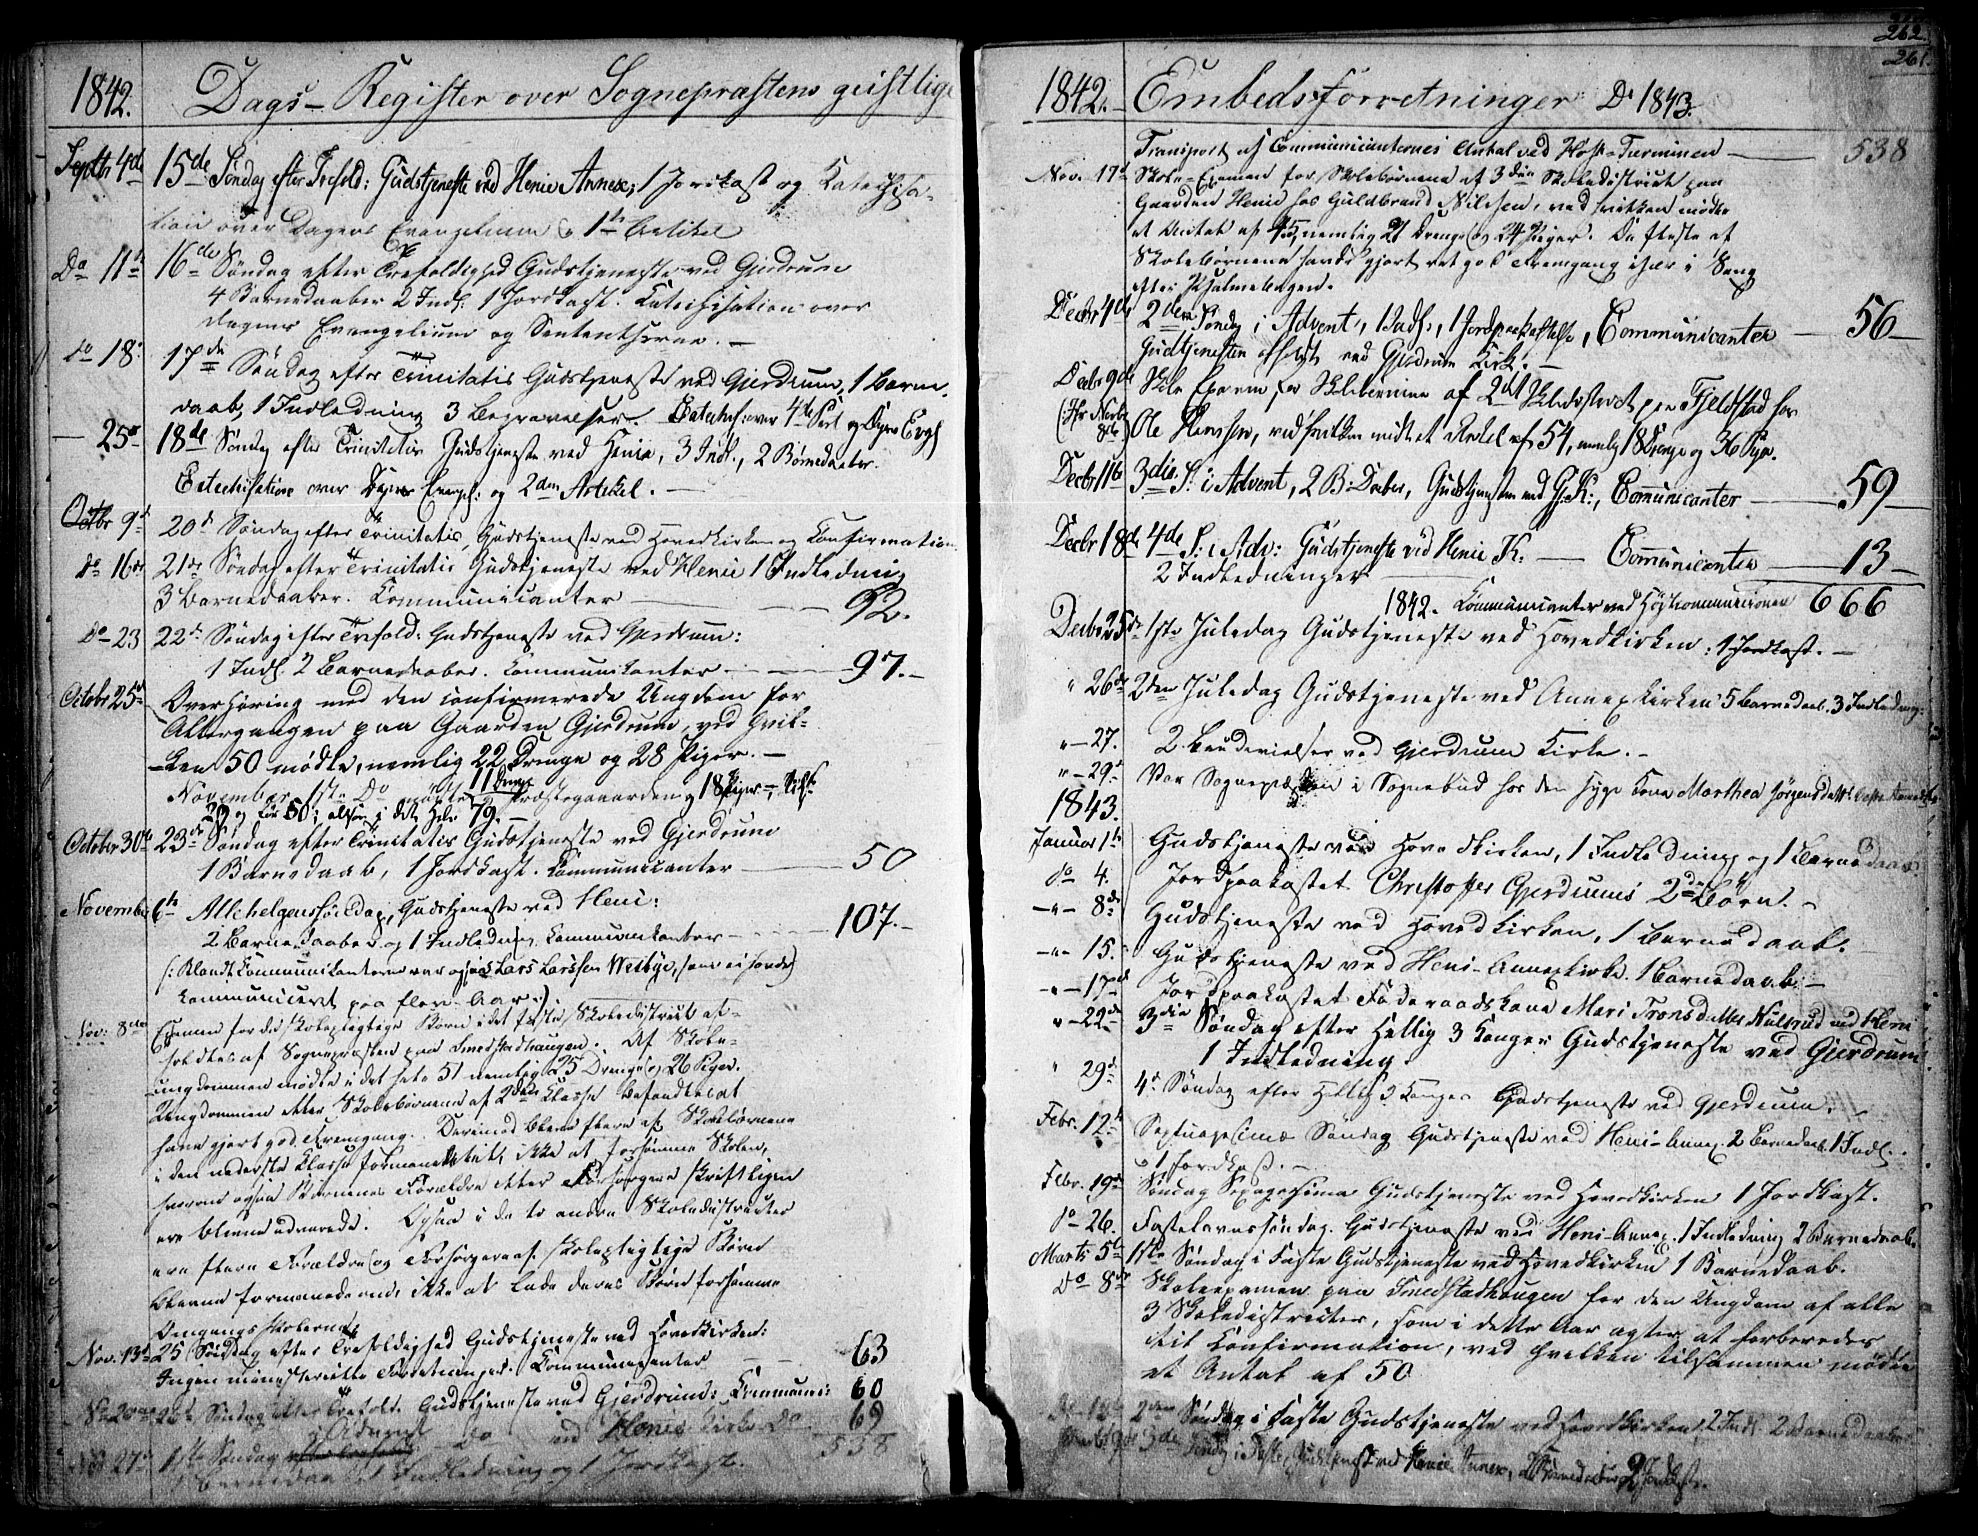 1842. Dags-Register over Sognepræstens geistlige
Septbr 4de 15de Søndag efter Trefold: Gudstjeneste ved Henie Annex; 1 Jordkast og Katechisa-
tion over Dagens Evangelium & 1ste Artikel
Do 11te 16de Søndag efter Trefoldighed Gudstjeneste ved Gjerdrum
4 Barnedaaber 2 Indl: 1 Jordkast. Catechisation over
dagens Evangelium og Sententserne. —
do 18. 17de Søndag efter Trinitatis Gudstjeneste ved Gjerdrum, 1 Barne-
daab, 1 Indledning 3 Begravelser. Catechis: over 4de Part og Dagens Evgl
— 25de 18de Søndag efter Trinitatis Gudstjeneste ved Henie, 3 Indl., 2 Børnedaaber.
Catechisation over Dagens Evangel: og 2den Artikel. —
Octbr 9de 20de Søndag efter Trinitatis, Gudstjeneste ved Hovedkirken og Confirmation
do 16de 21de Søndag efter Trinitatis Gudstjeneste ved Henie 1 Indledning
3 Barnedaaber. Kommunicanter — 92.
do 23 22de Søndag efter Trefold: Gudstjeneste ved Gjerdrum:
1 Indl. 2 Barnedaaber. Kommunikanter — 97. —
Octobr 25de Overhøring med den confirmerede Ungdom før
Altergangen paa Gaarden Gjerdrum, ved hvil-
ken 50 mødte, nemlig 22 Drenge og 28 Piger. —
November 1ste Do mødte 11 Drenge Præstegaarden og 18 Piger =
29 og før 50; altsaa i det Hele 79. —
October 30te 23de Søndag efter Trinitatis Gudstjeneste ved Gjerdrum
1 Barnedaab, 1 Jordkast. Kommunicanter — 50
November 6te Allehelgensøndag, Gudstjeneste ved Heni:
2 Barnedaaber og 1 Indledning. Kommunikanter — 107. —
(: Blandt Kommunikanterne var ogsaa Lars Larssen Melbye, som ei havde
kommuniceret paa flere Aar :)
Nov: 8de Examen for de skolepligtige Børn i det første Skoledistrict af-
holdtes af Sognepræsten paa Smedstadhaugen. Af Skole-
ungdommen mødte i det hele 51 nemlig 25 Drenge og 26 Piger.
Ungdommen eller Skolebørnene af 2den Klasse befandtes at
have gjort god Fremgang. Derimod bleve flere af Skolebørnene
i den nederste Klasse formanede til, ikke at forsømme Skolen,
hvorom ogsaa Børnenes Forældre eller Forsørgere skriftligen
ere blevne advarede. Ogsaa i de to andre Skoledistricter
ere flere Forældre og Forsørgere af skolepligtige Børn
blevne formanede om, ikke at lade deres Børn forsømme
Omgangsskolerne.
Nov. 13de 25 Søndag efter Trefoldighed Gudstjeneste ved Hovedkirken:
Ingen ministerielle Forretninger. Kommunicanter — 63
N. 20de 26de Søndag efter Trefold. Gudstjeneste ved Gjerdrum: Kommuni: 60
Nov 27de 1ste Søndag i Advent Do ved Henie Kirke Do 69
538
Barnedaab 1 Indledning og 1 Jordkast.
262
261.
1842. — Embedsforretninger Do 1843.
Transport af Communicanternes Antal ved Høst-Terminen — 538
Nov. 17de Skole-Examen for Skolebørnene af 3die Skoledistrict paa
Gaarden Henie hos Guldbrand Nilssen, ved hvilken mødte
et Antal af 45, nemlig 21 Drenge og 24 Piger. De fleste af
Skolebørnene havde gjort ret god Fremgang især i Sang
efter Psalmebogen.
Decbr 4de 2den Søndag i Advent, 1 Indl., 1 Jordpaakastelse, Communicanter — 56 —
Gudstjenesten afholdt ved Gjerdrum Kirk. —
Decbr 9de Skole Examen for Skolebørnene af 2det Skoledistrict paa Fjeldstad hos
Ole Hanssen, ved hvilken mødte et Antal af 54, nemlig 18 Drenge og 36 Piger.
Decbr 11te 3die S. i Advent, 2 B: Daaber, Gudstjenesten ved G. K:, Communicanter — 59 —
Decbr 18de 4de S: i Adv: Gudstjeneste ved Henie K. — Communicanter — 13 —
2 Indledninger
1842. Communicanter ved Høstcommunionen 666
Decbr 25de 1ste Juledag Gudstjeneste ved Hovedkirken: 1 Jordkast. —
" 26de 2den Juledag Gudstjeneste ved Annexkirken 5 Barnedaab. 3 Indledning:
" — 27. 2 Brudevielser ved Gjerdrum Kirke. —
" — 29de Var Sognepræsten i Sognebud hos den syge Kone Marthea Jørgensdatter
1843.
Januar 1te Gudstjeneste ved Hovedkirken, 1 Indledning og 1 Barnedaab
do 4. Jordpaakastet Christoffer Gjerdrums 2de Børn. —
—"— 8de Gudstjeneste ved Hovedkirken, 1 Barnedaab.
—"— 15. Gudstjeneste ved Heni-Annexkirke. 1 Barnedaab. —
—"— 17de Jordpaakastet Føderaadskone Mari Tronsdatter Nulsrud ved Heni
" — 22de 3die Søndag efter Hellig 3 Konger Gudstjeneste ved Gjerdrum
1 Indledning
" 29de 4de Søndag efter Hellig 3 Konger Gudstjeneste ved Gjerdrum.
Febr. 12te Septuagesima Søndag Gudstjeneste ved Heni-Annex. 2 Barnedaab. 1 Indl.
& 1 Jordkast. —
Febr. 19de Søndag Sexagesima Gudstjeneste ved Hovedkirken 1 Jordkast.
do 26. Fastelavnssøndag. Gudstjeneste ved Heni-Annex. 1 Indledning 2 Barnedaab.
Marts 5te 1ste Søndag i Faste Gudstjeneste ved Hovedkirken 1 Barnedaab.
Do 8de Skoleexamen paa Smedstadhaugen for den Ungdom af alle
3 Skoledistricter, som i dette Aar agter at forberedes
til Confirmation, ved hvilken tilsammen mødte
et Antal af 50
12te 2den Søndag i Faste Gudstjeneste ved Hovedkirken, 2 Indl. 2 Barnedaaber
19de 3die Søndag i Faste, Gudstjeneste ved Henie Annex, Barnedaaber 2 Jordkast.